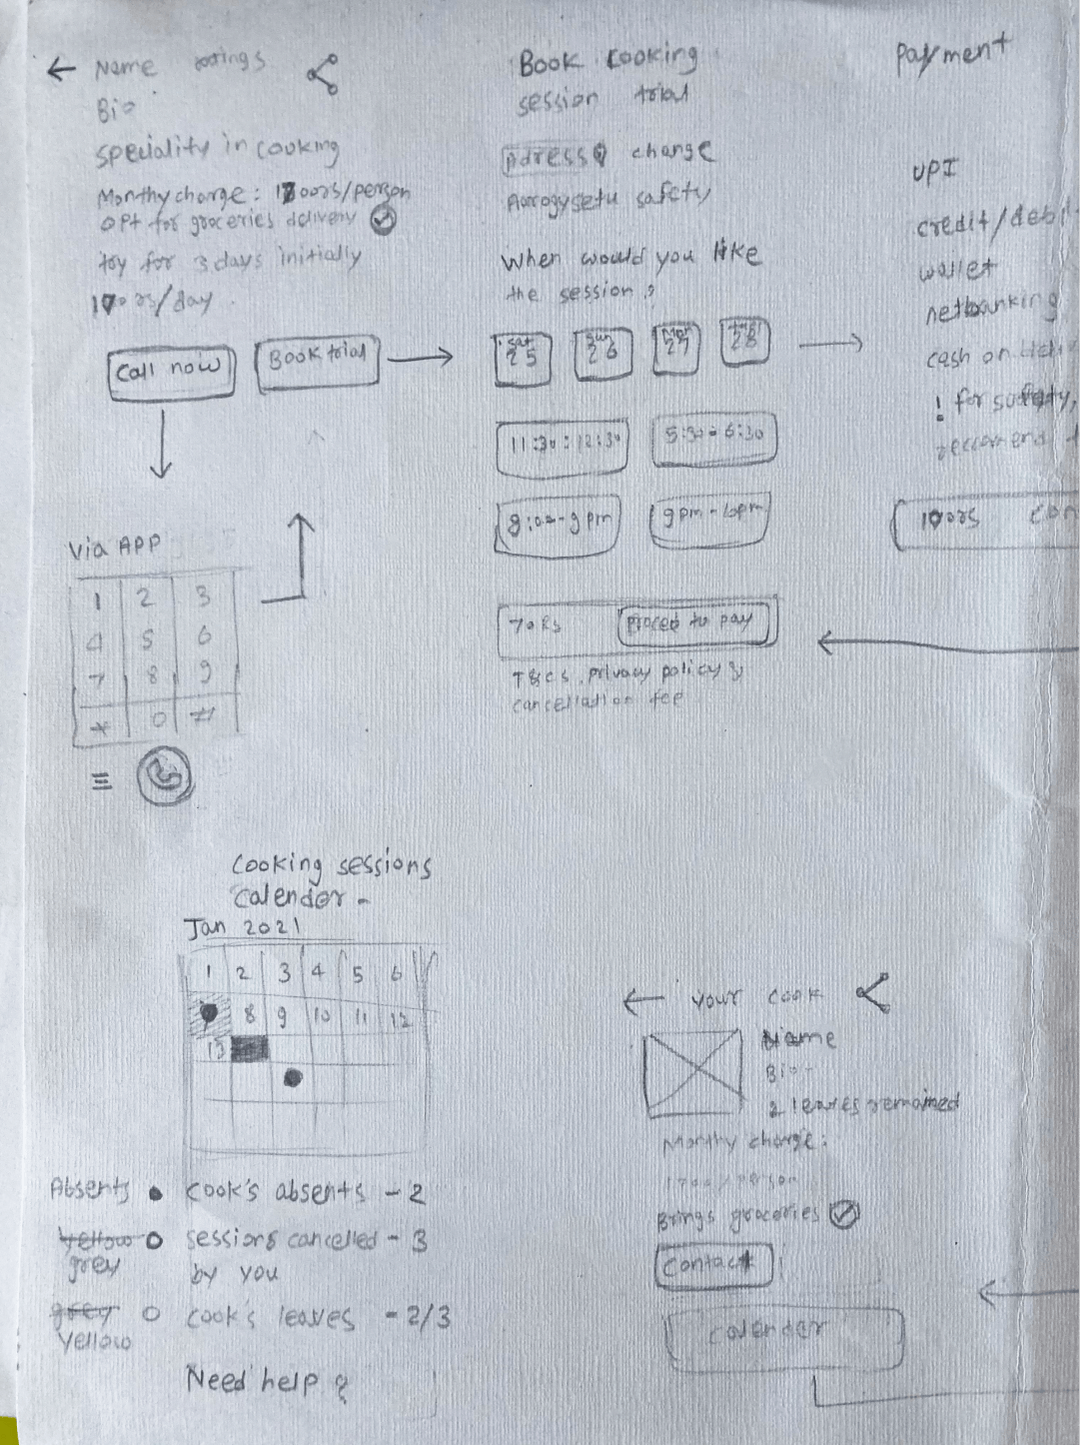 ← Name ratings
Bio
speciality in cooking
Monthy charge: 1700rs/person
OPt for groceries delivery
try for 3 days initially
170 rs/day
Call now
Book trial
Via APP
1 2 3
4 5 6
7 8 9
* 0 #
Book cooking
session trial
Adress change
Aarogysetu safety
When would you like
the session?
Sat 25
Sun 26
Mon 27
28
11:30:12:30
5:30-6:30
8:00-9pm
9pm-10pm
70 Rs
Proceed to pay
T&Cs, privacy policy &
cancellation fee
Payment
UPI
credit/debi
wallet
netbanking
cash on
! for safety,
reccomend
100rs
Cooking sessions
Calender -
Jan 2021
1 2 3 4 5 6
8 9 10 11 12
13
Absents cook's absents - 2
yellow sessions cancelled - 3
grey by you
grey cook's leaves - 2/3
yellow
Need help?
← your cook
Name
Bio -
2 leaves remained
Monthy charge:
1700/person
Brings groceries
Contact
Calender